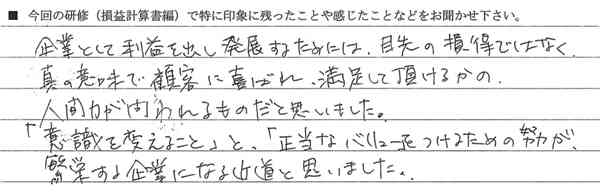 ■ 今回の研修（損益計算書編）で特に印象に残ったことや感じたことなどをお聞かせ下さい。
企業として利益を出し発展するためには、目先の損得ではなく、
真の意味で顧客に喜ばれ、満足して頂けるかの
人間力が問われるものだと思いました。
「意識を変えること」と、「正当なバリューをつけるための努力が、
繁栄する企業になる近道と思いました。